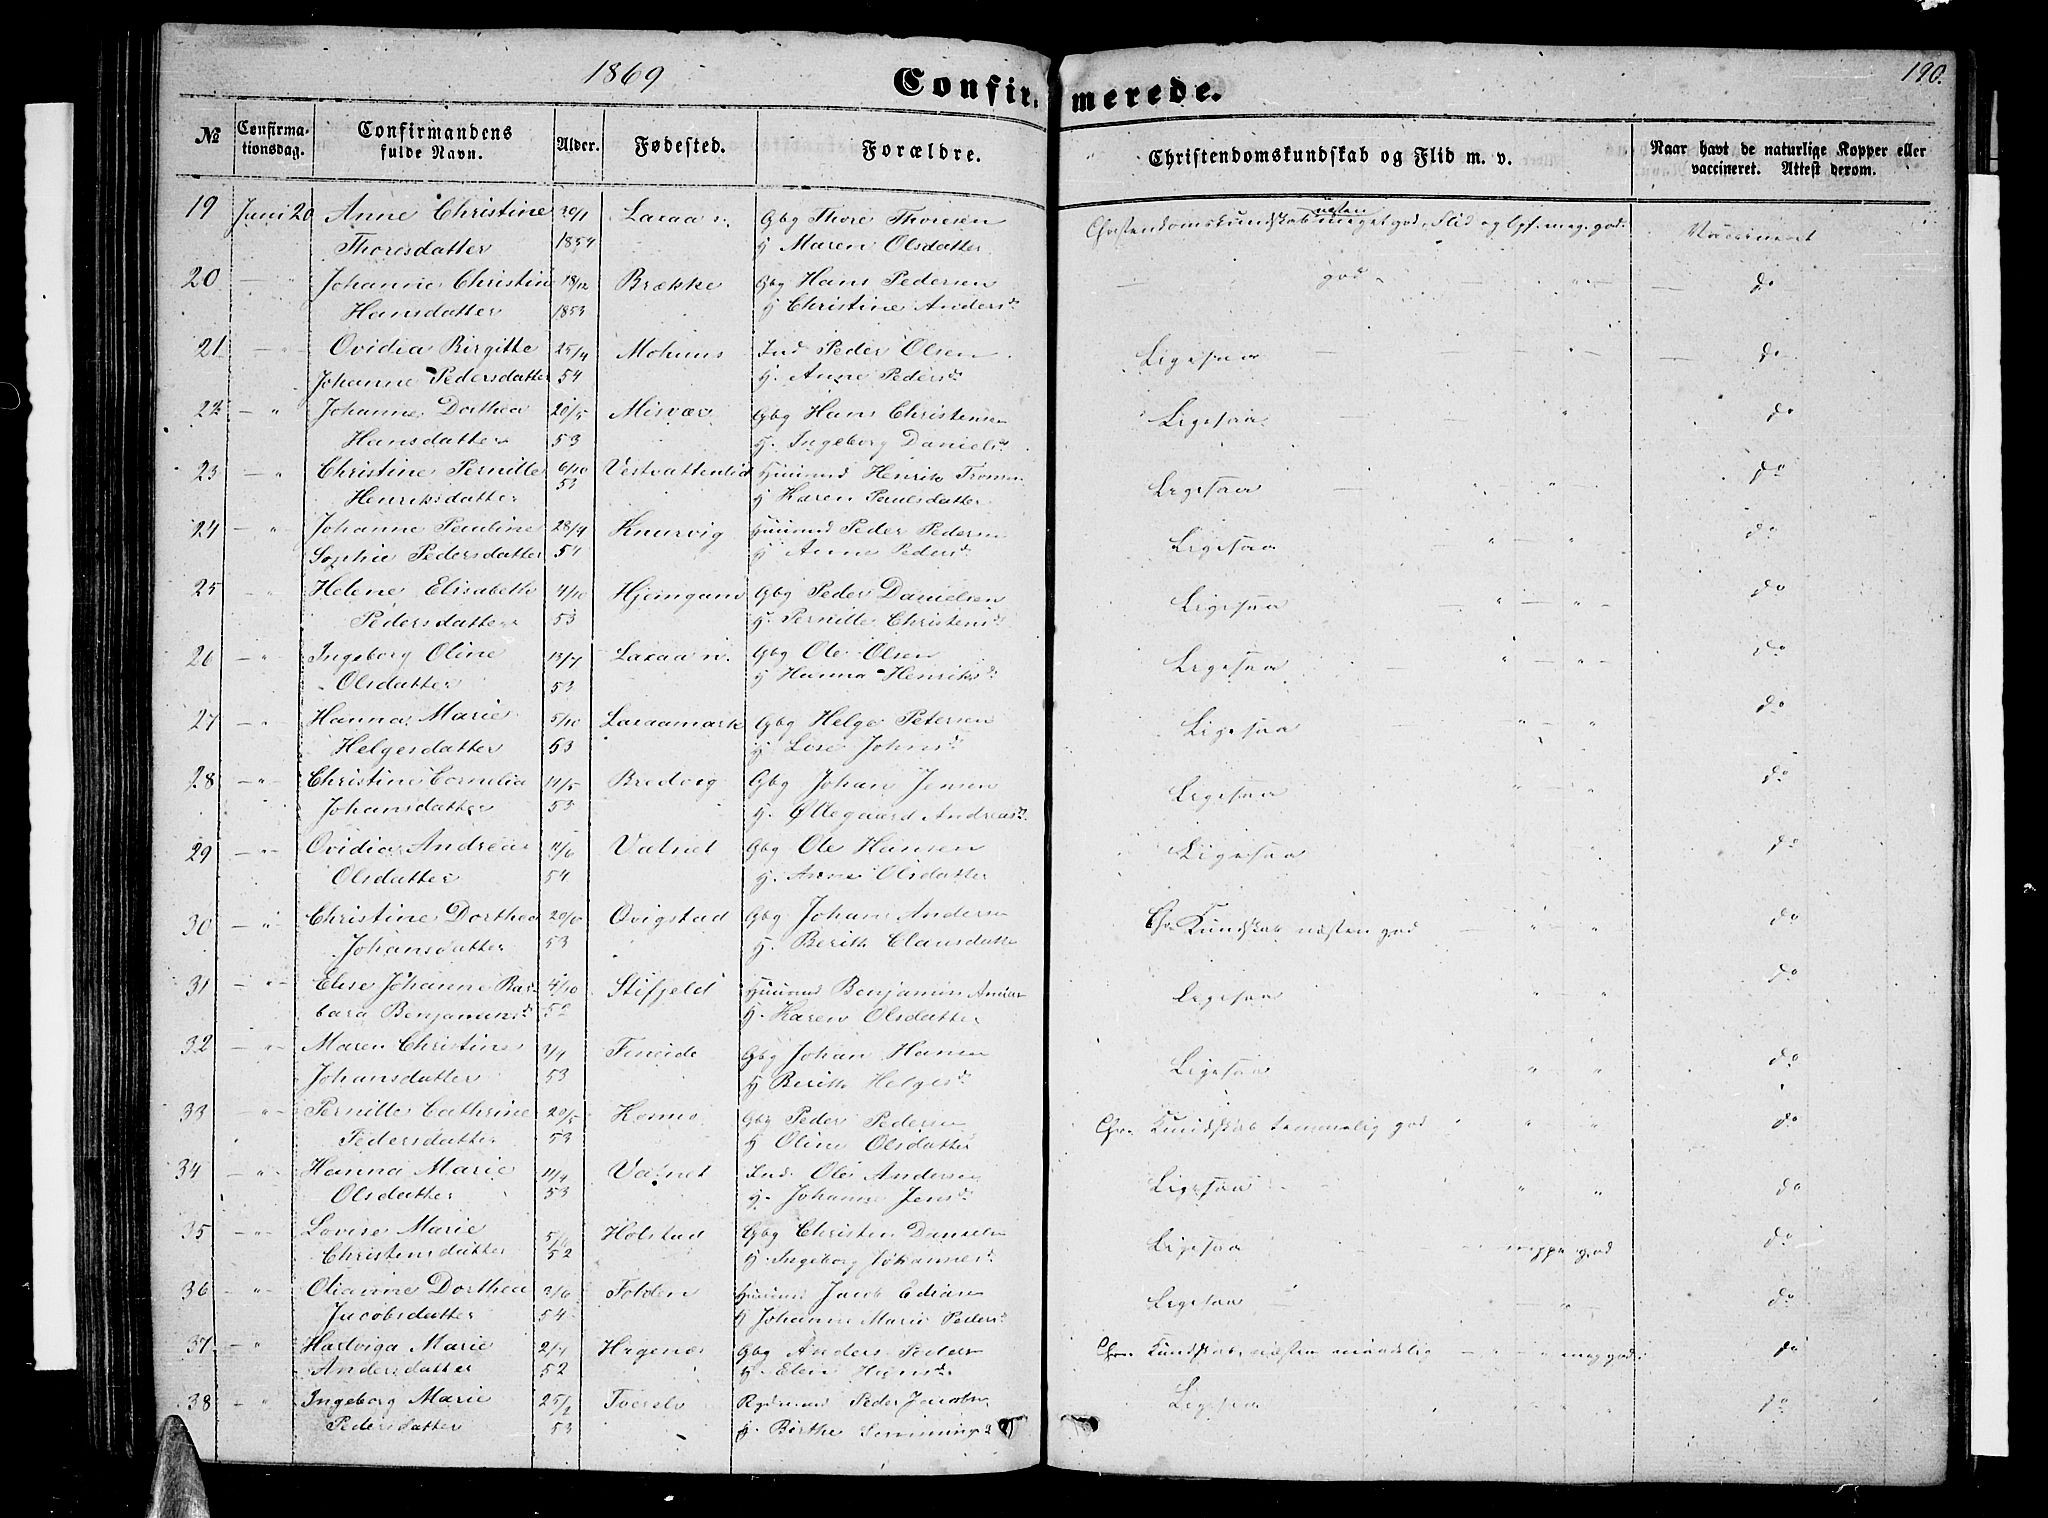 1869 Confirmerede. 190.
№ Confirmationsdag. Confirmandens fulde Navn. Alder. Fødested. Forældre. Christendomskundskab og Flid m. v. Naar havt de naturlige Kopper eller vaccineret. Attest derom.
19 Juni 20 Anne Christine 20/1 Laxaa n. Gbg Thore Thoresen Christendomskundskab næsten meget god, Flid og Opf. meg. god. Vaccineret
Thoresdatter 1854 H Maren Olsdatter
20 — " Johanne Christine 18/12 Brække Gbg Hans Pedersen — god — " — " — do
Hansdatter 1853 H Christine Andersd.
21 — " Ovidia Birgitte 25/4 Mohuus Ind Peder Olsen Ligesaa — — " — do
Johanne Pedersdatter 54 H. Anne Pedersd.
22 — " Johanne Dorthea 20/5 Misvær Gbg Hans Christensen Ligesaa " do
Hansdatter 53 H. Ingeborg Danielsd.
23 — " Christine Pernille 6/10 Vestvattenlid Huusmd Henrik Ligesaa — " — " do
Henriksdatter 53 H Karen Paulsdatter
24 — " Johanne Pauline 28/9 Knurvig Huusmd Peder Pedersen Ligesaa — " — " do
Sophie Pedersdatter 54 H Anne Pedersd.
25 — " Helene Elisabeth 4/10 Hjemgam Gbg Peder Danielsen Ligesaa — " — " — do
Pedersdatter 53 H. Pernille Christensd.
26 — " Ingeborg Oline 13/7 Laxaa n. Gbg Ole Olsen Ligesaa — " — " — do
Olsdatter 53 H Hanna Henriksd.
27 — " Hanna Marie 5/10 Laxaamark Gbg Helge Petersen Ligesaa — " — " do
Helgesdatter 53 H. Lise Johnsd.
28 — " Christine Cornelia 14/5 Bredvig Gbg Johan Jensen Ligesaa " — " do
Johansdatter 53 H. Øllegaard Andreasd.
29 — " Ovidia Andrea 4/6 Valnet Gbg Ole Hansen Ligesaa " " do
Olsdatter 54 H. Anne Olsdatter
30 — " Christine Dorthea Qvigstad Gbg Johan Andersen Chr. Kundskab næsten god — " — " do
Johansdatter 53 H. Berith Clausdatter
31 — " Elise Johanne Bar- 4/10 Stifjeld Huusmd Benjamin Ligesaa " — " do
bara Benjaminsd. H. Karen Olsdatter
32 — " Maren Christine Fineide Gbg Johan Hansen Ligesaa " " do
Johansdatter 53 H Berith Helgesd.
33 — " Pernille Cathrine 20/5 Kosmo Gbg Peder Pedersen Chr. Kundskab temmelig god " " do
Pedersdatter 53 H Oline Olsdatter
34 — " Hanna Marie 14/4 Valnet Ind. Ole Andersen Ligesaa — " " do
Olsdatter 53 H. Johanne Jensd.
35 — " Lovise Marie Holstad Gbg Christen Danielsen Ligesaa — god do
Christensdatter 52 H. Ingeborg Johannesd.
36 — " Olianne Dorthea 3/6 Folden Huusmd Jacob Ligesaa — " — do
Jacobsdatter 54 H Johanne Marie Pedersd.
37 — " Hartviga Marie 2/4 Hagenæs Gbg Anders Peders Chr. Kundskab næsten maadelig — " — " meg god do
Andersdatter 52 H. Elen Hansd.
38 — " Ingeborg Marie Tverelv Peder Jacobs Ligesaa " " do
Pedersdatter 53 H. Birthe